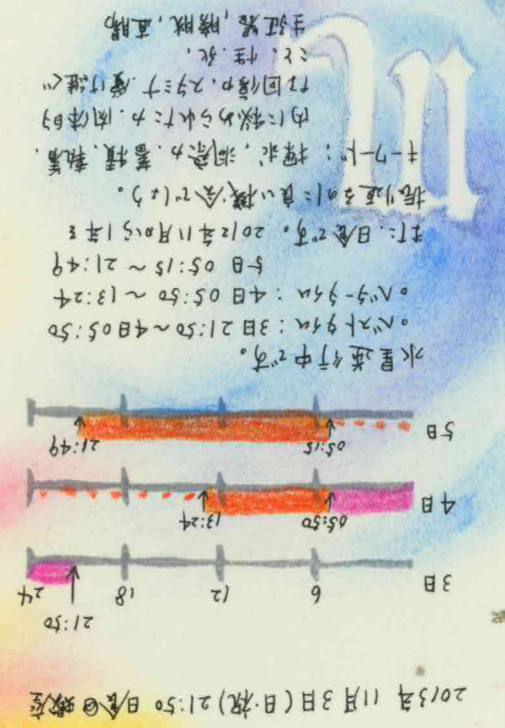 2013年 11月3日(日・祝) 21:50 日食@蠍座
21:50
6 12 18 24
3日
4日 05:50 13:24
5日 05:15 21:49
水星逆行中です。
・ベストタイム：3日21:50～4日05:50
・ベータータイム：4日05:50～13:24
5日 05:15～21:49
また、日食です。2012年11月から1年を
振り返るのに良い機会でしょう。
キーワード：探求、洞察力、蓄積、執着、
内に秘められた力、肉体的
な回復力、スタミナ、受け継ぐ
こと、性、死、
生殖器、膀胱、直腸